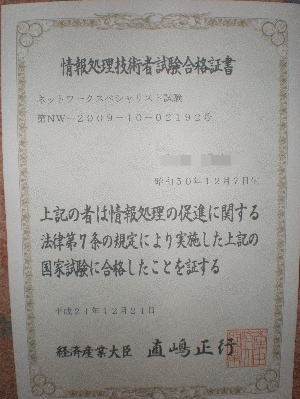 情報処理技術者試験合格証書
ネットワークスペシャリスト試験
第NW-2009-10-02192号
昭和50年12月7日生
上記の者は情報処理の促進に関する
法律第7条の規定により実施した上記の
国家試験に合格したことを証する
平成21年12月21日
経済産業大臣 直嶋正行